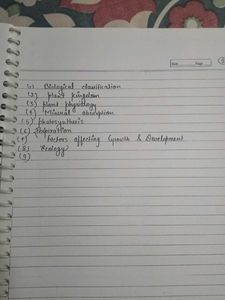 Date Page
(1) Biological classification
(2) plant kingdom
(3) plant physiology
(4) Mineral absorption
(5) photosynthesis
(6) respiration
(7) Factors affecting Growth & Development
(8) Ecology
(9)